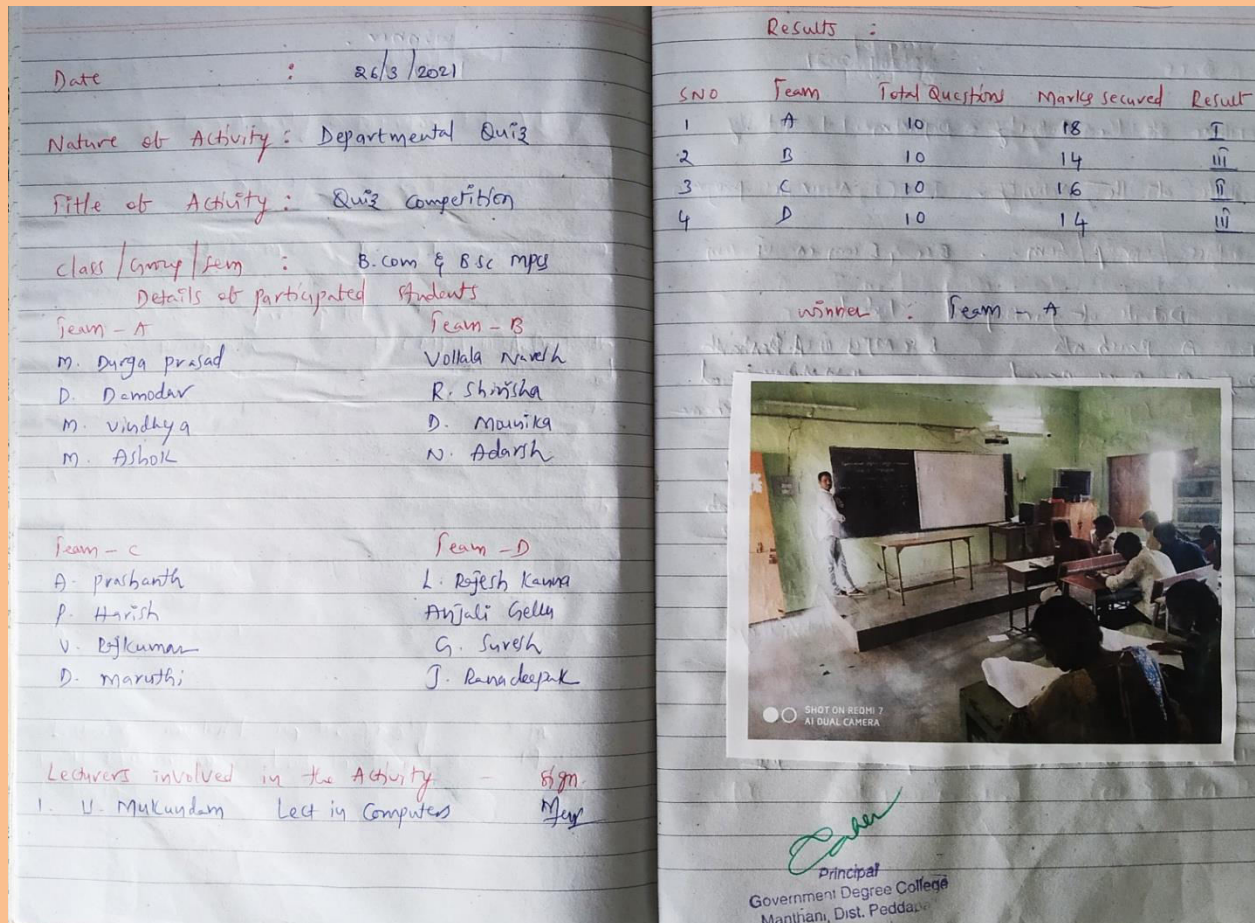 Date : 26/3/2021
Nature of Activity : Departmental Quiz
Title of Activity : Quiz Competition
Class/Group/Sem : B.Com & BSc mpcs
Details of participated students
Team - A Team - B
M. Durga prasad Vollala Naresh
D. Damodar R. Shirisha
M. Vindhya D. Mounika
M. Ashok N. Adarsh
Team - C Team - D
A. Prashanth L. Rajesh Kanna
P. Harish Anjali Gellu
V. Rajkumar G. Suresh
D. Maruthi J. Ranadeepak
Lecturers involved in the Activity - Sign.
1. V. Mukundam Lect in Computers
Results :
SNO Team Total Questions Marks secured Result
1 A 10 18 I
2 B 10 14 III
3 C 10 16 II
4 D 10 14 III
Winner : Team - A
SHOT ON REDMI 7
AI DUAL CAMERA
Principal
Government Degree College
Manthani, Dist. Peddapa